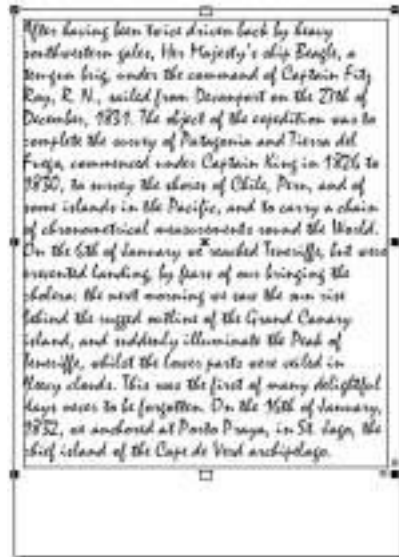 After having been twice driven back by heavy
southwestern gales, Her Majesty's ship Beagle, a
ten-gun brig, under the command of Captain Fitz
Roy, R. N., sailed from Devonport on the 27th of
December, 1831. The object of the expedition was to
complete the survey of Patagonia and Tierra del
Fuego, commenced under Captain King in 1826 to
1830, to survey the shores of Chile, Peru, and of
some islands in the Pacific, and to carry a chain
of chronometrical measurements round the World.
On the 6th of January we reached Teneriffe, but were
prevented landing, by fears of our bringing the
cholera: the next morning we saw the sun rise
behind the rugged outline of the Grand Canary
island, and suddenly illuminate the Peak of
Teneriffe, whilst the lower parts were veiled in
fleecy clouds. This was the first of many delightful
days never to be forgotten. On the 16th of January,
1832, we anchored at Porto Praya, in St. Jago, the
chief island of the Cape de Verd archipelago.